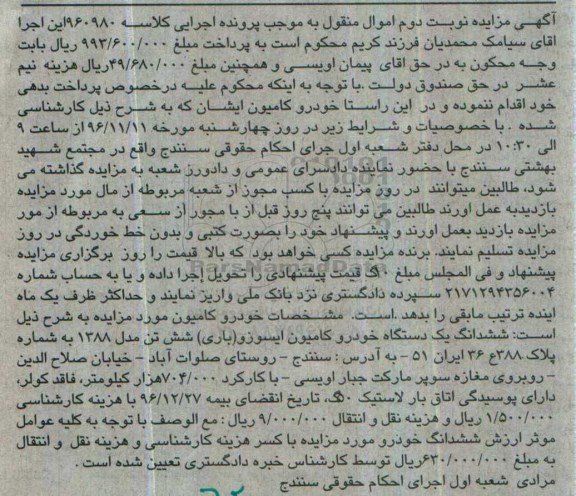 آگهی مزایده نوبت دوم اموال منقول به موجب پرونده اجرایی کلاسه ۹۶۰۹۸۰این اجرا
اقای سیامک محمدیان فرزند کریم محکوم است به پرداخت مبلغ ۹۹۳/۶۰۰/۰۰۰ ریال بابت
وجه محکون به در حق اقای پیمان اویسی و همچنین مبلغ ۴۹/۶۸۰/۰۰۰ریال هزینه نیم
عشر در حق صندوق دولت .با توجه به اینکه محکوم علیه درخصوص پرداخت بدهی
خود اقدام ننموده و در این راستا خودرو کامیون ایشان که به شرح ذیل کارشناسی
شده . با خصوصیات و شرایط زیر در روز چهارشنبه مورخه ۹۶/۱۱/۱۱ از ساعت ۹
الی ۱۰:۳۰ در محل دفتر شعبه اول جرای احکام حقوقی سنندج واقع در مجتمع شهید
بهشتی سنندج با حضور نماینده دادسرای عمومی و دادورز شعبه به مزایده گذاشته می
شود، طالبین میتوانند در روز مزایده با کسب مجوز از شعبه مربوطه از مال مورد مزایده
بازدیدبه عمل اورند طالبین می توانند پنج روز قبل از با مجور از سعی به مربوطه از مور
مزایده بازدید بعمل اورند و پیشنهاد خود را بصورت کتبی و بدون خط خوردگی در روز
مزایده تسلیم نمایند. برنده مزایده کسی خواهد بود که بالا قیمت را روز برگزاری مزایده
پیشنهاد و فی المجلس مبلغ قیمت پیشنهادی را تحویل إجرا داده و یا به حساب شماره
۲۱۷۱۲۹۴۳۵۶۰۰۴ سپرده دادگستری نزد بانک ملی واریز نمایند و حداکثر ظرف یک ماه
اینده ترتیب مابقی را بدهد .است. مشخصات خودرو کامیون مورد مزایده به شرح ذیل
است: ششدانگ یک دستگاه خودرو کامیون ایسوزو(باری) شش تن مدل ۱۳۸۸ به شماره
پلاک ۳۸۸ع ۳۶ ایران ۵۱ - به آدرس : سنندج - روستای صلوات آباد - خیابان صلاح الدین
- روبروی مغازه سوپر مارکت جبار اویسی - با کارکرد ۷۰۴/۰۰۰هزار کیلومتر، فاقد کولر،
دارای پوسیدگی اتاق بار لاستیک تاریخ انقضای بیمه ۹۶/۱۲/۲۷ با هزینه کارشناسی
۱/۵۰۰/۰۰۰ ریال و هزینه نقل و انتقال ۹/۰۰۰/۰۰۰ ریال : مع الوصف با توجه به کلیه عوامل
موثر ارزش ششدانگ خودرو مورد مزایده با کسر هزینه کارشناسی و هزینه نقل و انتقال
به مبلغ ۶۳۰/۰۰۰/۰۰۰ریال توسط کارشناس خبره دادگستری تعیین شده است .
مرادی شعبه اول اجرای احکام حقوقی سنندج